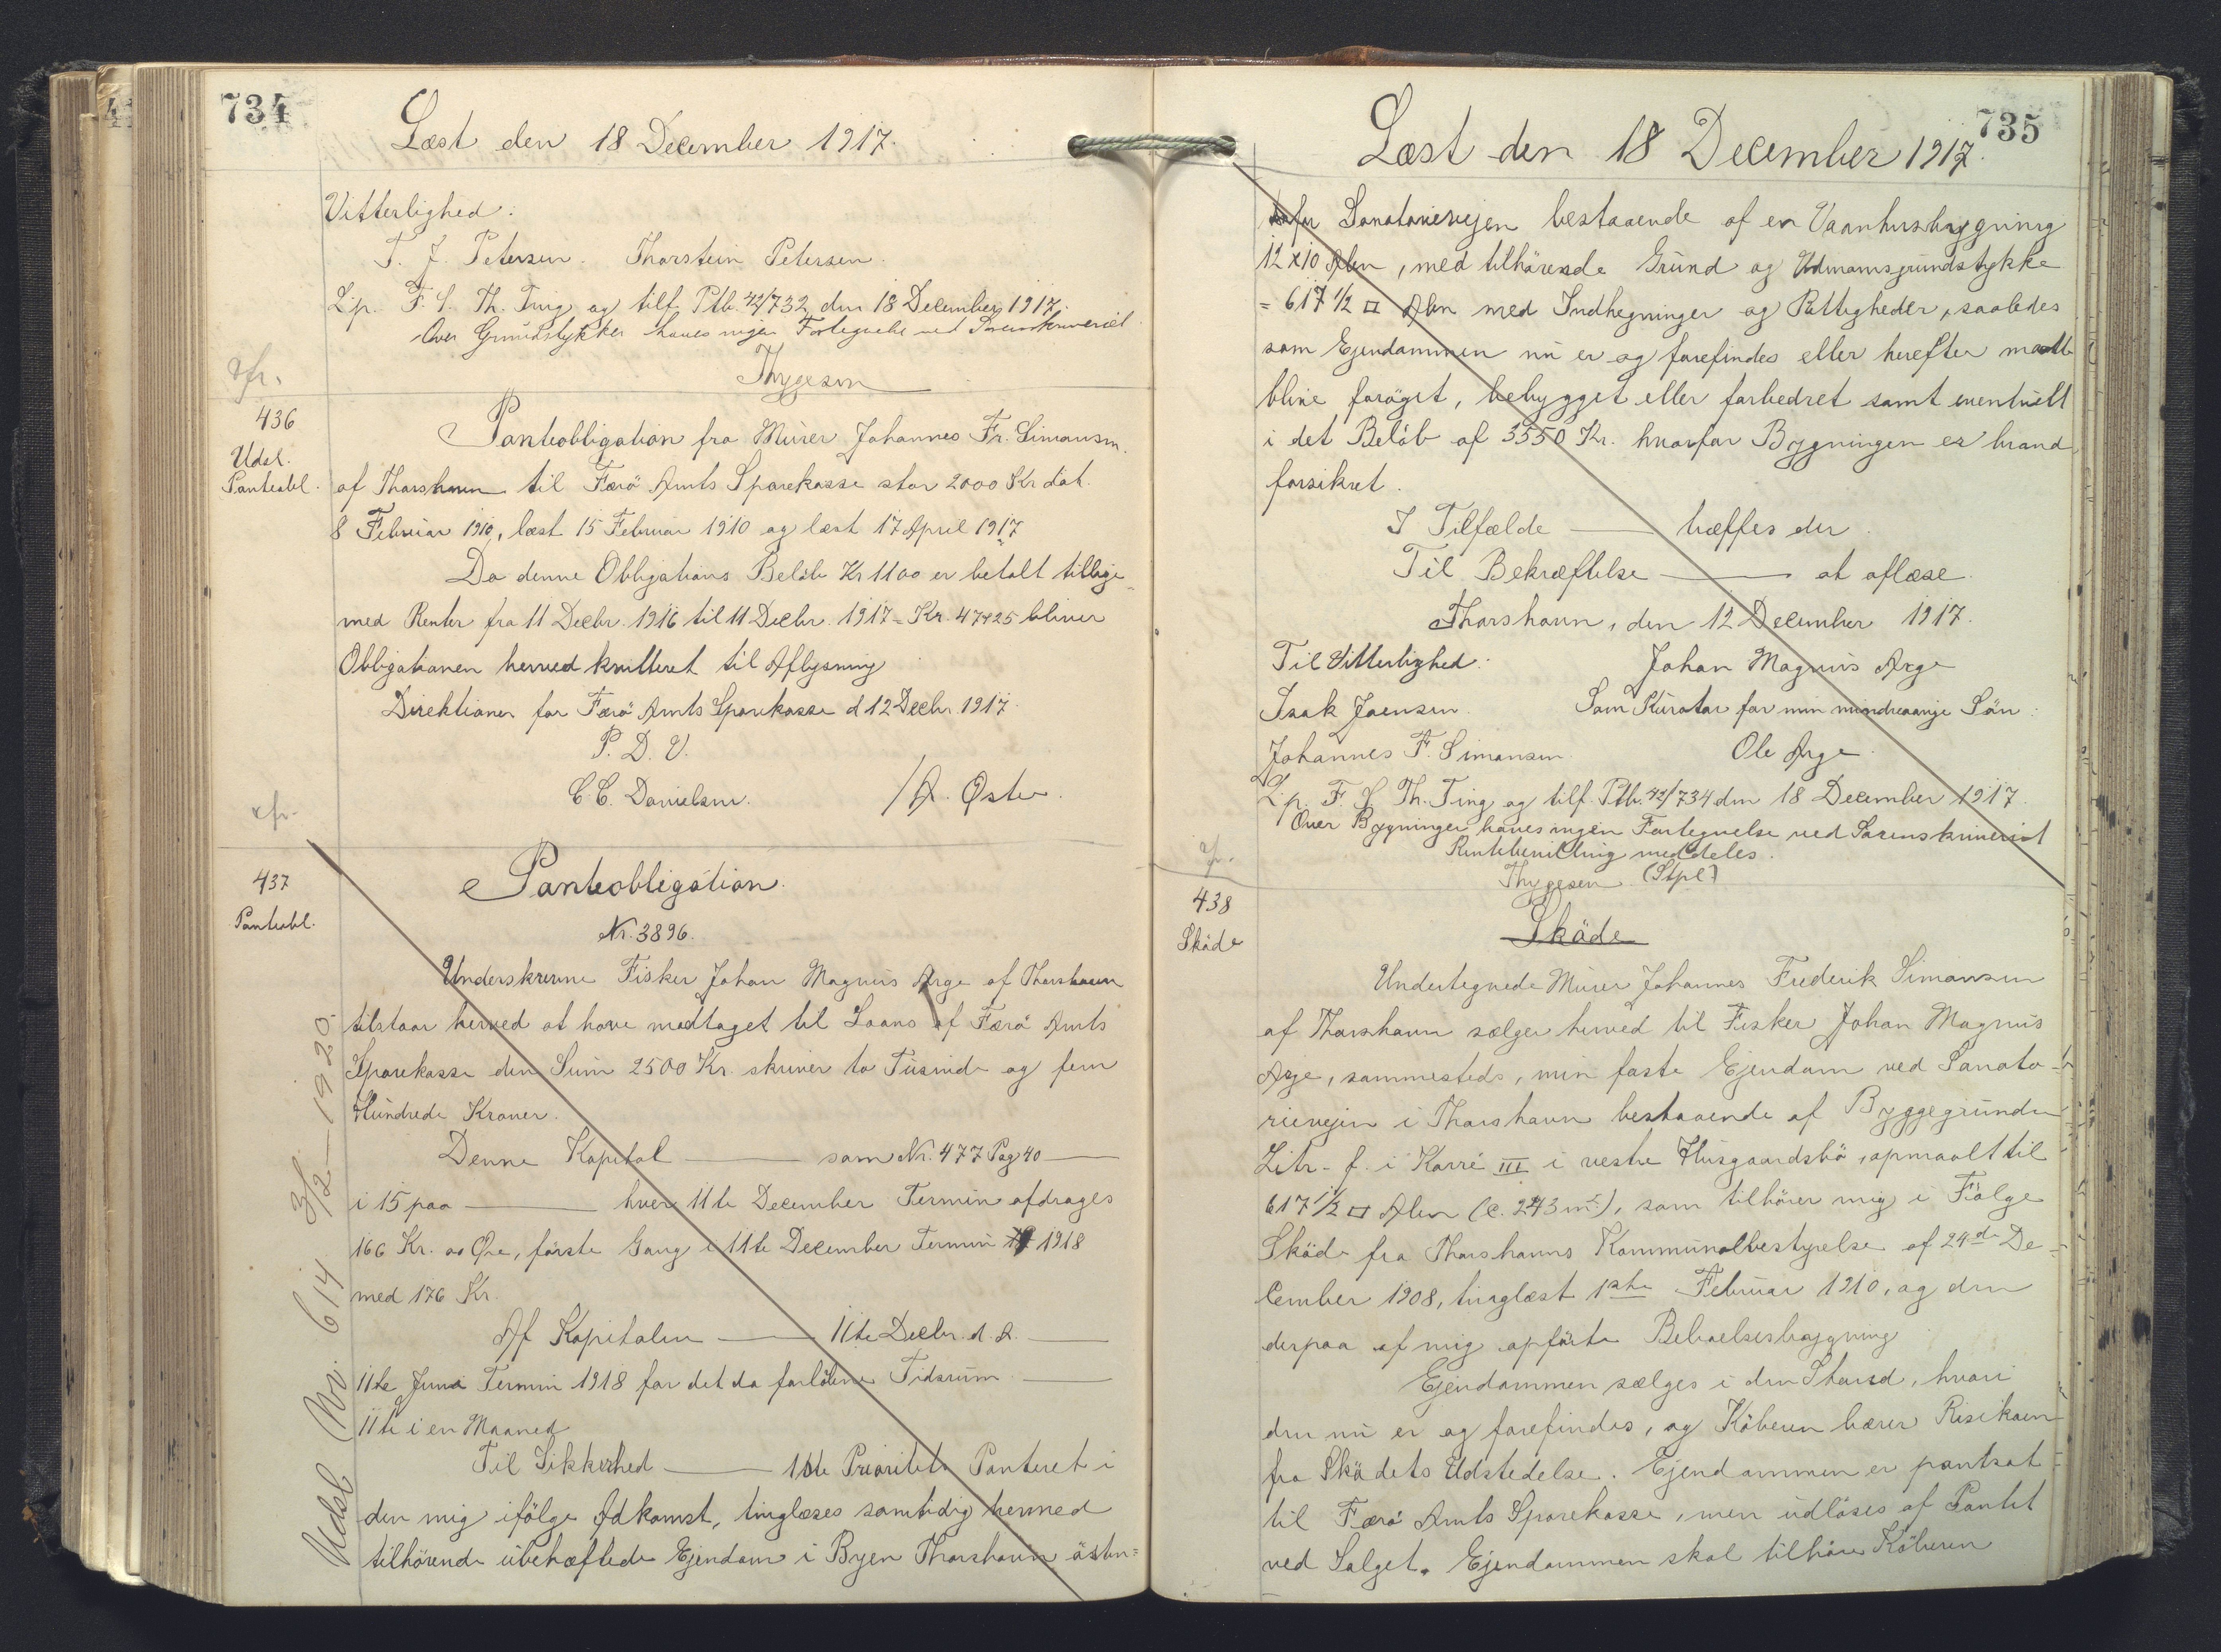 734
Læst den 18 December 1917.
Vitterlighed:
T. J. Petersen. Thorstein Petersen.
Lp. F. S. Th. Ting og tilf. Ptb. 42/732 den 18 December 1917.
Over Grundstykker haves ingen Fortegnelse ved Sorenskriveriet.
Thygesen
436
Udsl.
Panteobl.
Panteobligation fra Murer Johannes Fr. Simonsen.
af Thorshavn til Færö Amts Sparekasse stor 2000 Kr dat.
8 Februar 1910, læst 15 Februar 1910 og læst 17 April 1917
Da denne Obligations Beløb Kr 1100 er betalt tillige
med Renter fra 11 Decbr. 1916 til 11 Decbr. 1917 = Kr. 47,25 bliver
Obligationen herved kvitteret til Aflysning
Direktionen for Færö Amts Sparekasse d 12 Decbr. 1917.
P. D. V.
C. C. Danielsen. / A. Øster.
437
Panteobl.
Panteobligation.
Nr. 3896.
Underskrevne Fisker Johan Magnus Arge af Thorshavn
tilstaar herved at have modtaget til Laans af Færö Amts
Sparekasse den Sum 2500 Kr. skriver to Tusinde og fem
Hundrede Kroner.
Denne Kapital — som Nr. 477 Pag 40 —
i 15 paa — hver 11te December Termin afdrages
166 Kr. oo Øre, förste Gang i 11te December Termin 1918
med 176 Kr.
Af Kapitalen — 11te Decbr. d. A. —
11te Juni Termin 1918 for det da forlöbne Tidsrum —
11te i en Maaned
Til Sikkerhed — 1ste Prioritets Panteret i
den mig ifölge Adkomst, tinglæses samtidig hermed
tilhörende ubehæftede Ejendom i Byen Thorshavn östen=
Udsl Nr. 614 3/2 – 1920
735
Læst den 18 December 1917.
for Sanatorievejen bestaaende af en Vaanhusbygning
12 x 10 Alen, med tilhörende Grund og Udmarksgrundstykke
= 617 1/2 □ Alen med Indhegninger og Rettigheder, saaledes
som Ejendommen nu er og forefindes eller herefter maatte
blive foröget, bebygget eller forbedret samt eventuelt
i det Belöb af 3550 Kr. hvorfor Bygningen er brand
forsikret.
I Tilfælde — træffes der.
Til Bekræftelse — at aflæse.
Thorshavn, den 12 December 1917.
Til Vitterlighed: Johan Magnus Arge
Isak Joensen. Som Kurator for min mindreaarige Sön:
Johannes F. Simonsen. Ole Arge.
Lp. F. S. Th. Ting og tilf. Ptb. 42/734 den 18 December 1917.
Over Bygninger haves ingen Fortegnelse ved Sorenskriveriet
Rentebevilling meddeles.
Thygesen (Stpl.)
438
Sköde
Sköde
Undertegnede Murer Johannes Frederik Simonsen
af Thorshavn sælger herved til Fisker Johan Magnus
Arge, sammesteds, min faste Ejendom ved Sanato=
rievejen i Thorshavn bestaaende af Byggegrunden
Litr. f. i Karré III i vestre Husgaardsbö, opmaalt til
617 1/2 □ Alen (c. 243 m²), som tilhörer mig i Fölge
Sköde fra Thorshavns Kommunalbestyrelse af 24de De=
cember 1908, tinglæst 1ste Februar 1910, og den
derpaa af mig opförte Beboelsesbygning
Ejendommen sælges i den Stand, hvori
den nu er og forefindes, og Köberen bærer Risikoen
fra Sködets Udstedelse. Ejendommen er pantsat
til Færö Amts Sparekasse, men udlöses af Pantet
ved Salget. Ejendommen skal tilhöre Köberen